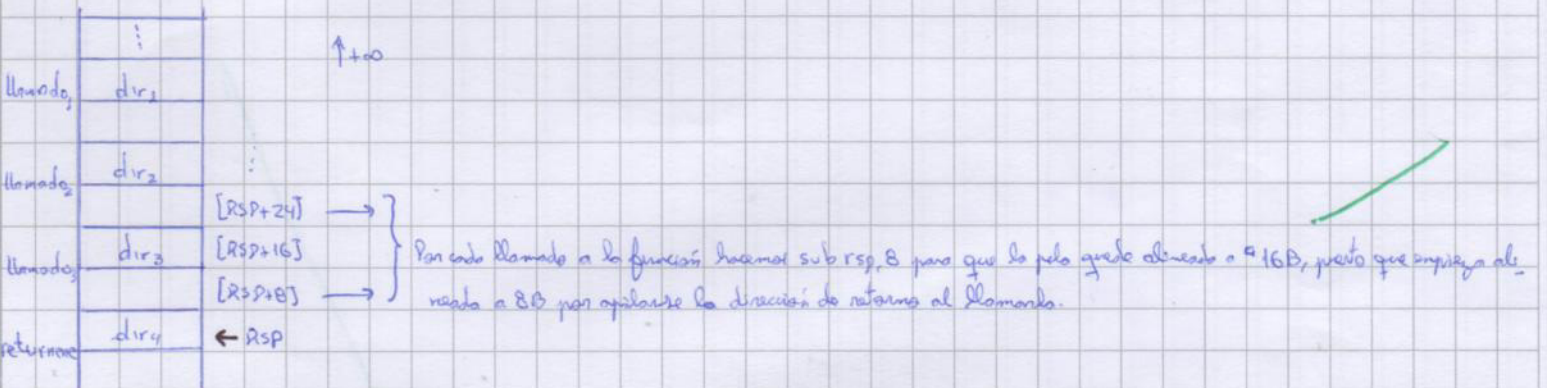 ⋮
↑+∞
llamado₁ dir₁
llamado₂ dir₂ ⋮
[RSP+24] →
llamado₃ dir₃ [RSP+16] Por cada llamado a la función hacemos sub rsp, 8 para que la pila quede alineada a 16B, puesto que empieza ali_
[RSP+8] → neada a 8B por apilarse la dirección de retorno al llamarla.
returnone dir₄ ← RSP